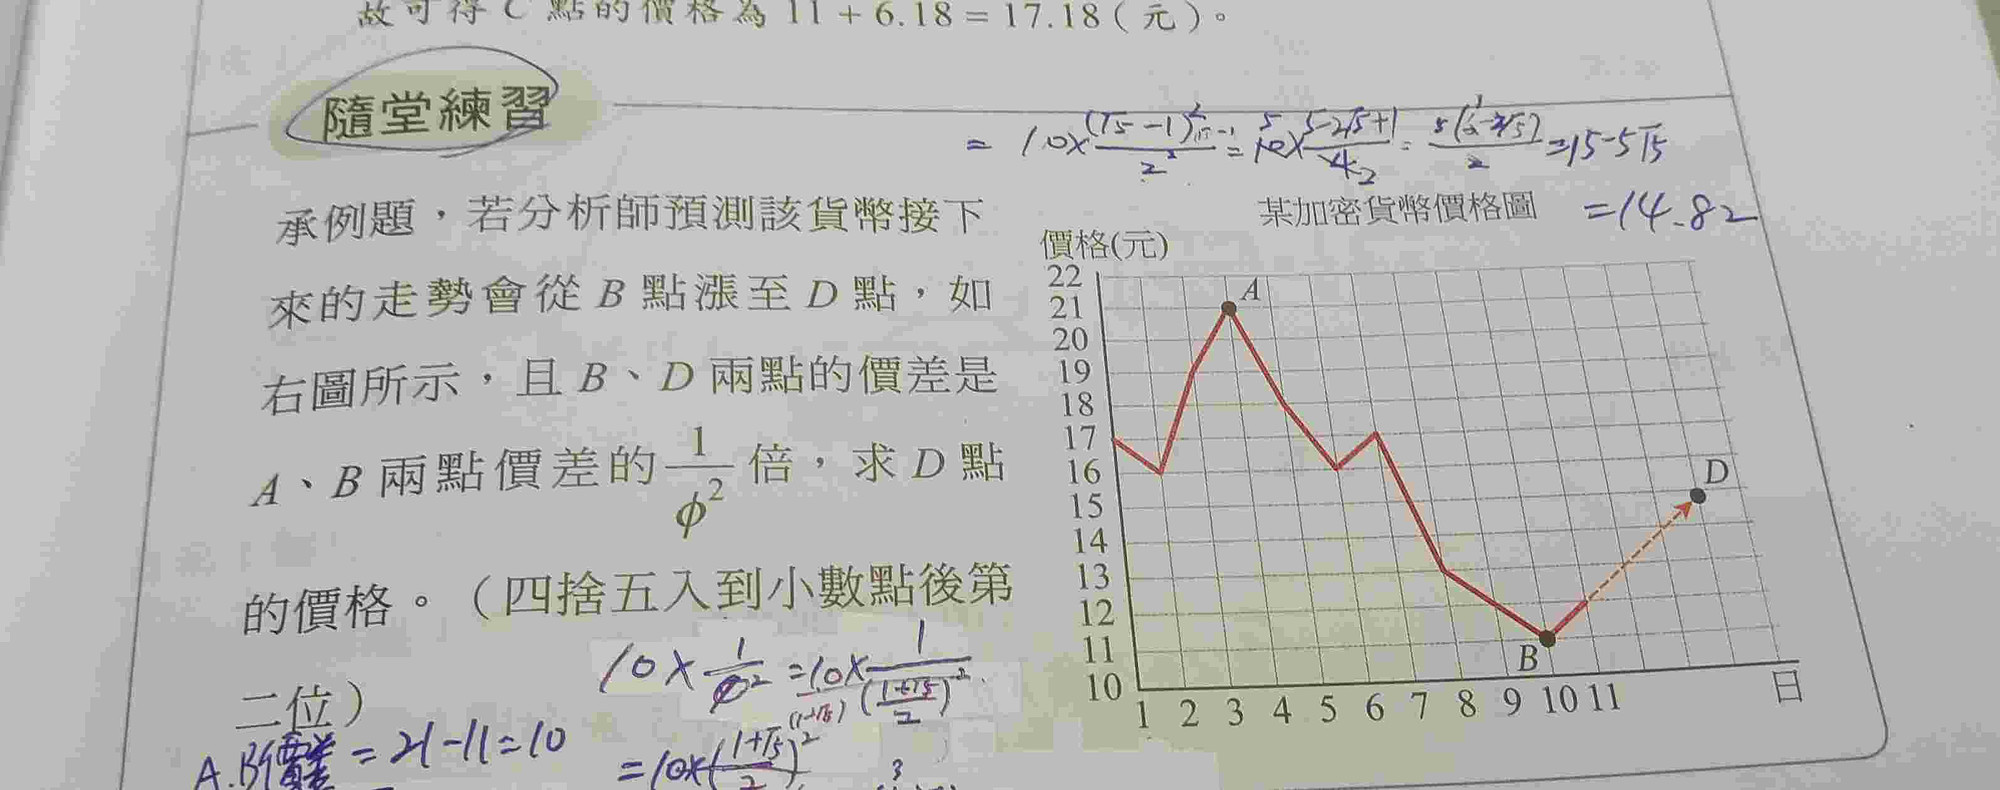 故可得 C 點的價格為 11 + 6.18 = 17.18（元）。
隨堂練習
= 10×(√5-1)²/2² = 10×5-2√5+1/4 = =15-5√5
承例題，若分析師預測該貨幣接下
來的走勢會從 B 點漲至 D 點，如
右圖所示，且 B、D 兩點的價差是
A、B 兩點價差的 1/ϕ² 倍，求 D 點
的價格。（四捨五入到小數點後第
二位）
某加密貨幣價格圖
=14.82
價格(元)
22
21
20
19
18
17
16
15
14
13
12
11
10
A
D
B
1 2 3 4 5 6 7 8 9 10 11
日
10×1/ϕ² = 10×1/((1+√5)/2)²
A.B價差 = 21-11=10
=10×(1+√5/2)²